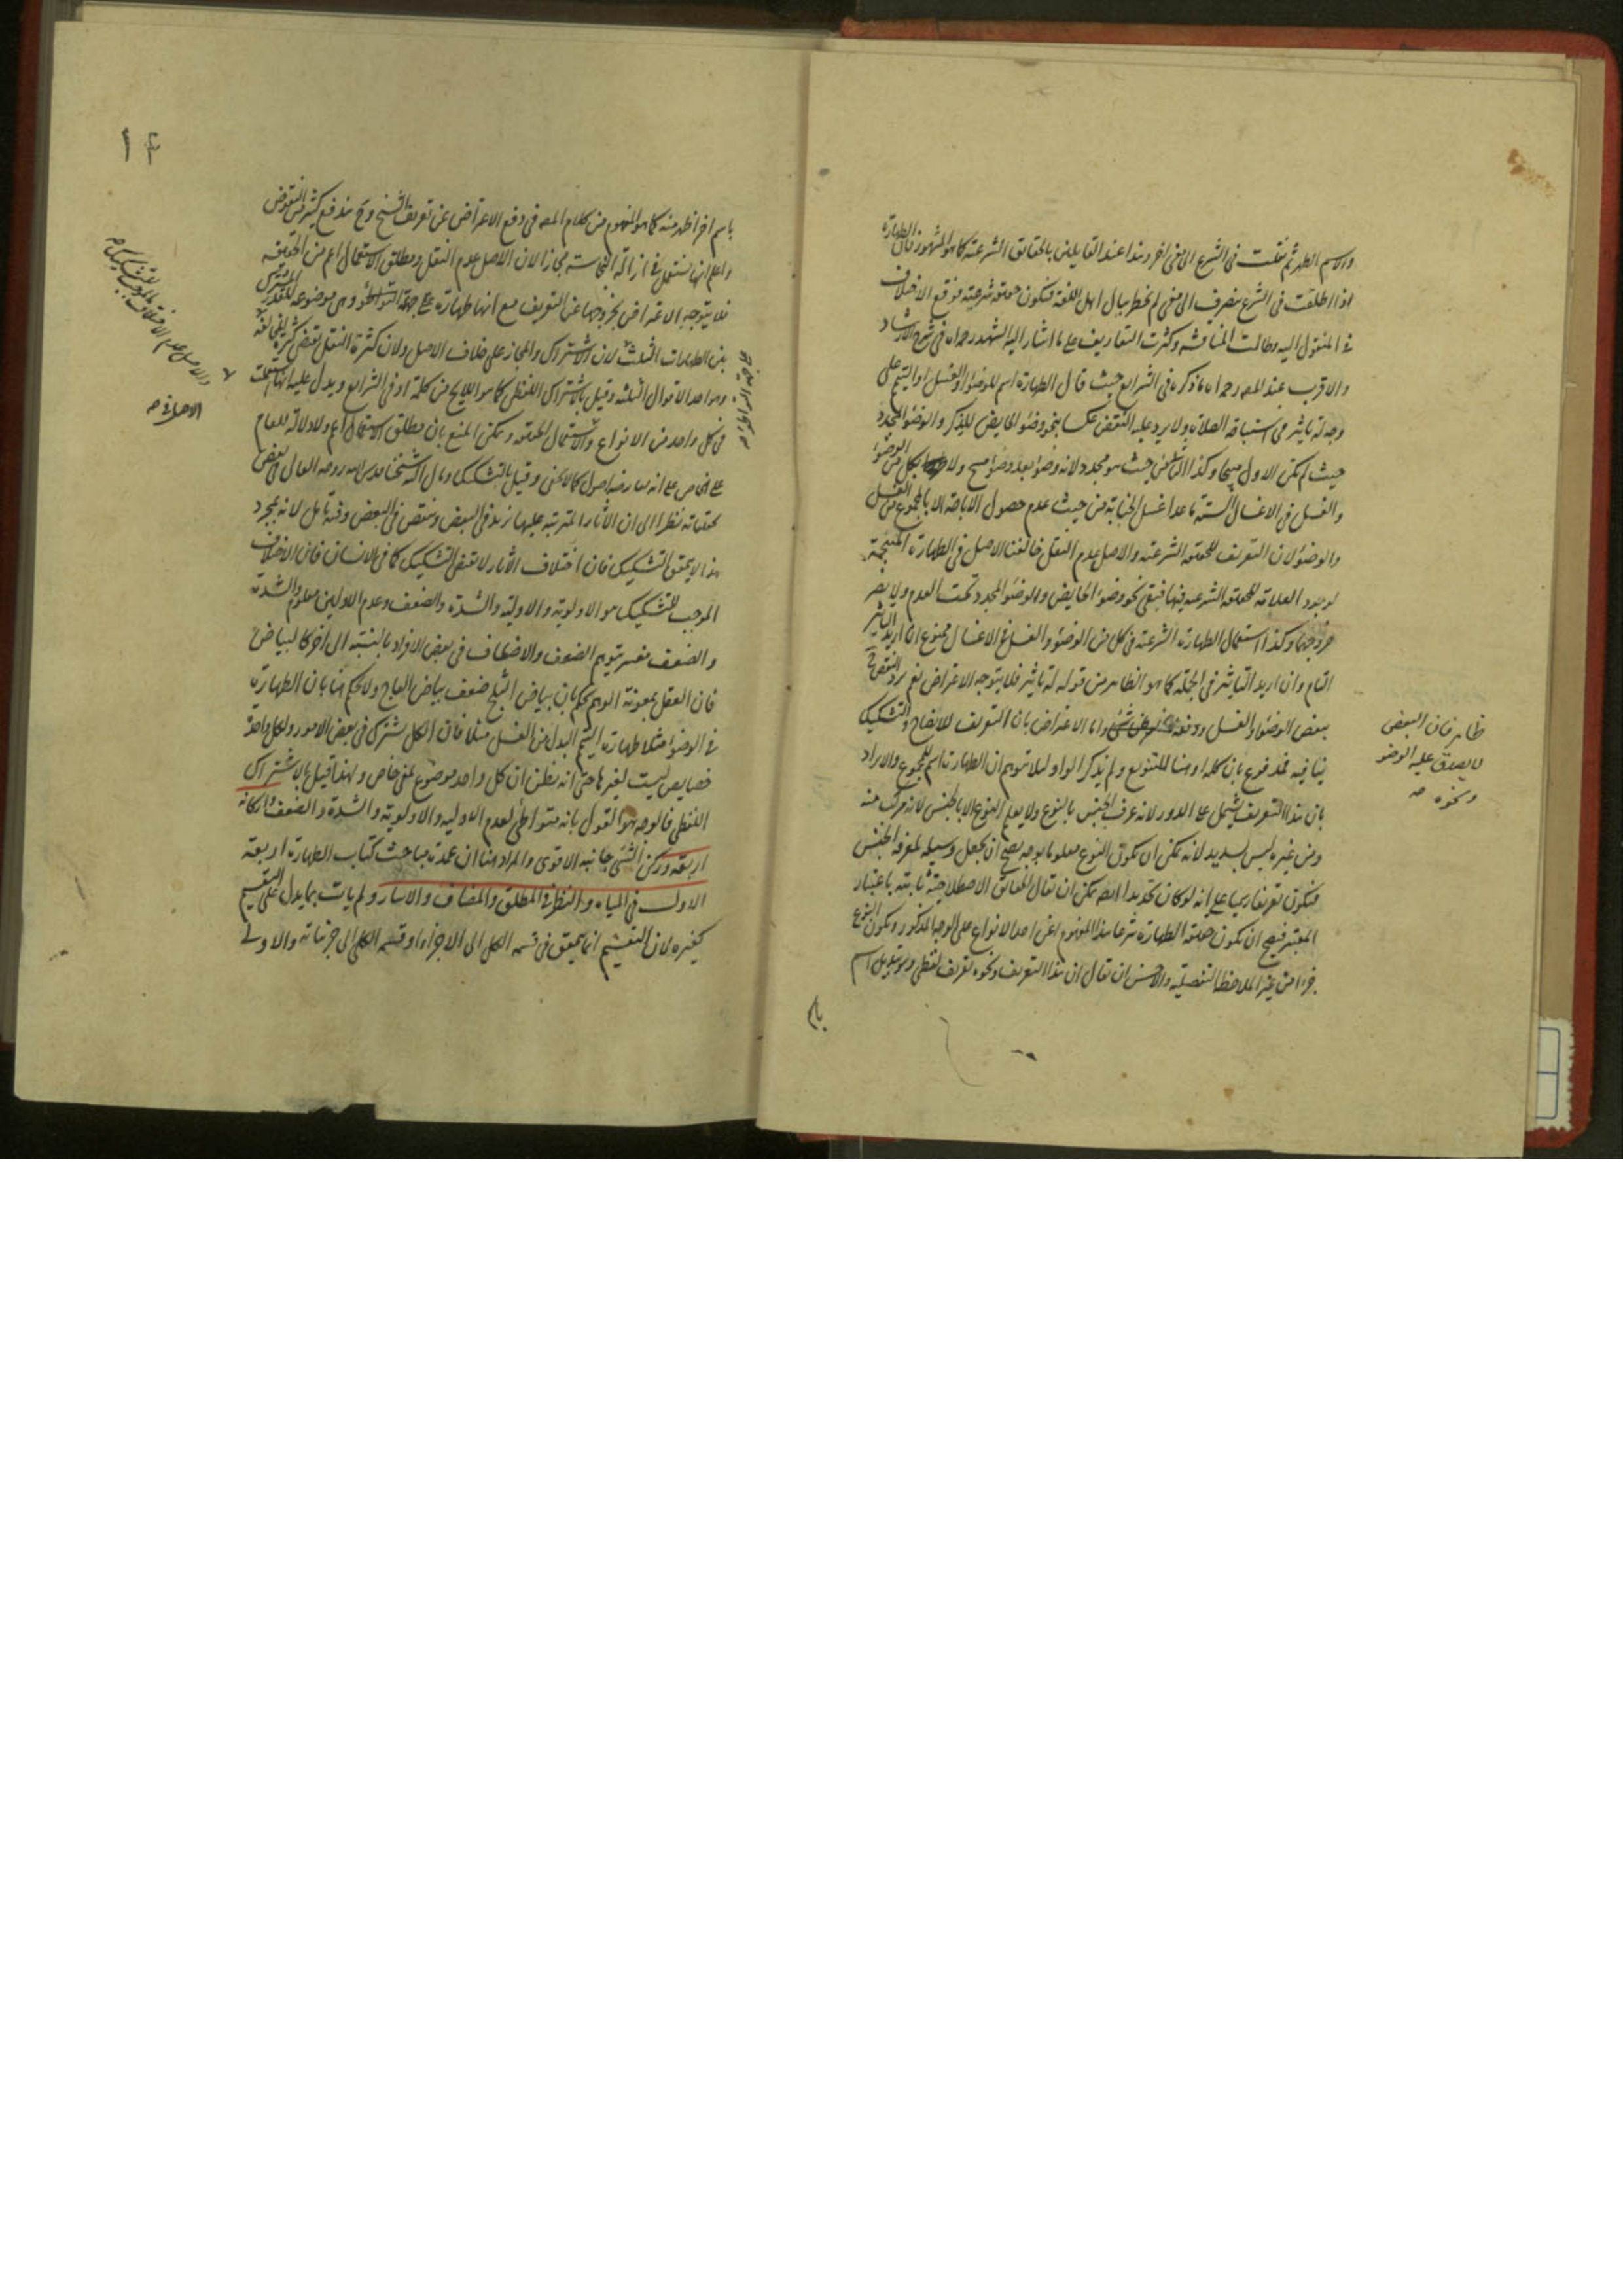 والاسم الطهر ثم نقلت فى الشرع الى معنى اخر وهذا عند القايلين بالحقايق الشرعية كما هو المشهور فان الطهارة
اذا اطلقت فى الشرع ينصرف الى معنى لم يخطر ببال اهل اللغة فتكون حقيقة شرعية فوقع الاختلاف
فى المنقول اليه وطالت المناقشة وكثرت التعاريف على ما اشار اليه الشهيد رحمه اه فى شرح الارشاد
والاقرب عند المصه رحمه اه ما ذكره فى الشرايع حيث قال الطهارة اسم للوضوء او الغسل او التيمم على
وجه له تاثير فى استباحة الصلاة ولا يرد عليه النقض عكسا بنحو وضوء الحايض للذكر والوضوء المجدد
حيث لم يكن الاول مبيحا وكذا الثانى من حيث هو مجدد لانه وضوء بعد وضوء مبيح ولا بكل من الوضوء
والغسل فى الاغسال الستة ما عدا غسل الجنابة من حيث عدم حصول الاباحة الا بالمجموع من الغسل
والوضوء لان التعريف للحقيقة الشرعية والاصل عدم النقل خالفنا الاصل فى الطهارة المبيحة
لوجود العلاقة للحقيقة الشرعية فيها فبقى نحو وضوء الحايض والوضوء المجدد تحت العدم ولا يضر
خروجهما وكذا استعمال الطهارة الشرعية فى كل من الوضوء والغسل فى الاغسال ممنوع ان اريد التاثير
التام وان اريد التاثير فى الجملة كما هو الظاهر من قوله له تاثير فلا يتوجه الاعتراض نعم يرد النقض ح
ببعض الوضوء والغسل ودفعه واما الاعتراض بان التعريف للايضاح والتشكيك
ينافيه فمدفوع بان كلمة او هنا للتنويع ولم يذكر الواو لئلا يتوهم ان الطهارة اسم للمجموع والايراد
بان هذا التعريف يشتمل على الدور لانه عرف الجنس بالنوع ولا يعلم النوع الا بالجنس لانه مركب منه
ومن غيره ليس بسديد لانه يمكن ان يكون النوع معلوما بوجه يصح ان يجعل وسيلة لمعرفة الجنس
فيكون تعريفا رسميا على انه لو كان تحديدا ايضه يمكن ان يقال الحقايق الاصطلاحية ثابتة باعتبار
المعتبر فيصح ان يكون حقيقة الطهارة شرعا هذا المفهوم اعنى احد الانواع على الوجه المذكور ويكون النوع
جزءا من غير الملاحظة التفصيلية والاحسن ان يقال ان هذا التعريف ونحوه تعريف لفظى وهو تبديل اسم
باسم
ظاهر فان البعض
لا يصدق عليه الوضوء
ونحوه صه
باسم اخر اظهر منه كما هو المفهوم من كلام المصه فى دفع الاعتراض عن تعريف الشيخ وح يندفع كثير من النقوض
واعلم انها تستعمل فى ازالة النجاسة مجازا لان الاصل عدم النقل ومطلق الاستعمال اعم من الحقيقة
فلا يتوجه الاعتراض بخروجها عن التعريف مع انها طهارة على جهة التواطؤ وهى موضوعة للقدر المشترك
بين الطهارات الثلث لان الاشتراك والمجاز على خلاف الاصل ولان كثرة النقل تقتضى كثرة المخالفة
وهو احد الاقوال الثلثة وقيل بالاشتراك اللفظى كما هو اللايح من كلمة او فى الشرايع ويدل عليه انها استعملت
فى كل واحد من الانواع والاستعمال الحقيقة ويمكن المنع بان مطلق الاستعمال اعم ولا دلالة للعام
على الخاص على انه معارضه اصول كما لا يخفى وقيل بالتشكيك ومال اليه شيخنا قدس الله روحه العالى فى بعض
تحقيقاته نظرا الى ان الاثار المترتبة عليها تزيد فى البعض وتنقص فى البعض وفيه تامل لانه بمجرد
هذا لا يتحقق التشكيك فان اختلاف الاثار لا يقتضى التشكيك كما فى الانسان فان الاختلاف
الموجب للتشكيك هو الاولوية والاولية والشدة والضعف وعدم الاولين معلوم والشدة
والضعف مفسر بتوهم الضعف والاضعاف فى بعض الافراد بالنسبة الى اخر كالبياض
فان العقل بمعونة الوهم يحكم بان بياض الثلج ضعف بياض العاج ولا يحكم هنا بان الطهارة
فى الوضوء مثلا طهارة التيمم البدل من الغسل مثلا فان الكل مشترك فى بعض الامور ولكل واحدة
خصايص ليست لغيرها حتى انه يظن ان كل واحد موضوع لمعنى خاص ولهذا قيل بالاشتراك
اللفظى فالوجه هو القول بانه متواطئ لعدم الاولية والاولوية والشدة والضعف اركانه
اربعة وركن الشئ جانبه الاقوى والمراد هنا ان عمدة مباحث كتاب الطهارة اربعة
الاول فى المياه والنظر فى المطلق والمضاف والاسار ولم يات بما يدل على التقسيم
كغيره لان التقسيم انما يتحقق فى قسمة الكل الى الاجزاء او قسمة الكلى الى جزئياته والاولى
والاصل عدم الاختلاف الموجب للتشكيك صه
الاصل فى صه
١٤